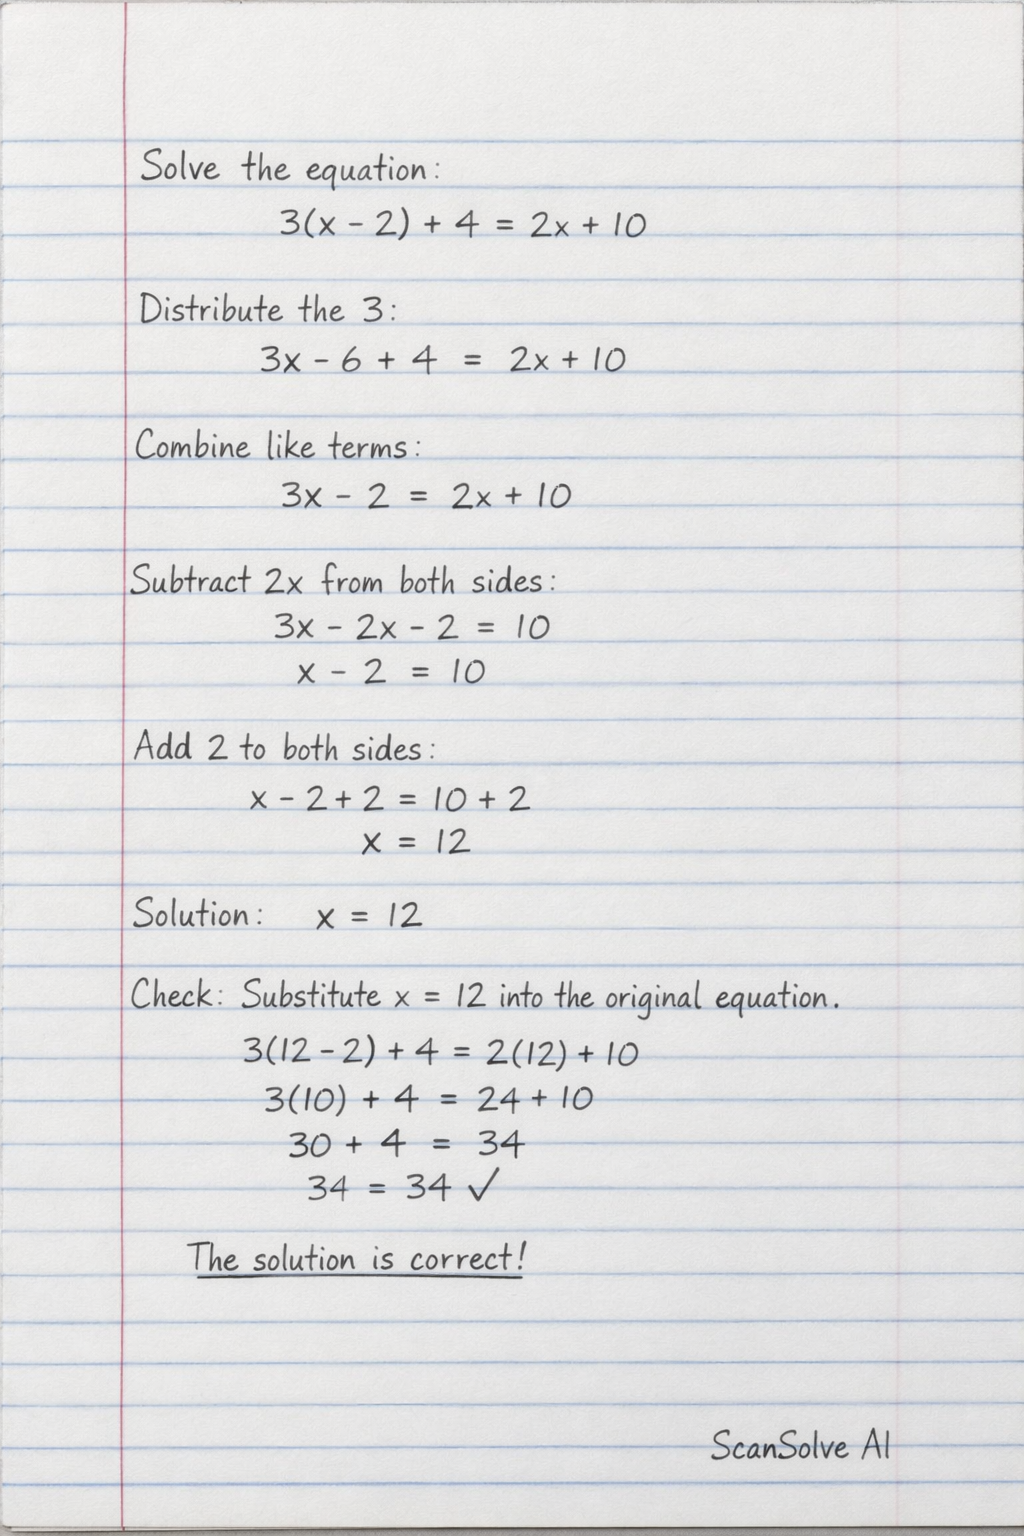 Solve the equation:
3(x - 2) + 4 = 2x + 10
Distribute the 3:
3x - 6 + 4 = 2x + 10
Combine like terms:
3x - 2 = 2x + 10
Subtract 2x from both sides:
3x - 2x - 2 = 10
x - 2 = 10
Add 2 to both sides:
x - 2 + 2 = 10 + 2
x = 12
Solution: x = 12
Check: Substitute x = 12 into the original equation.
3(12 - 2) + 4 = 2(12) + 10
3(10) + 4 = 24 + 10
30 + 4 = 34
34 = 34 ✓
The solution is correct!
ScanSolve AI